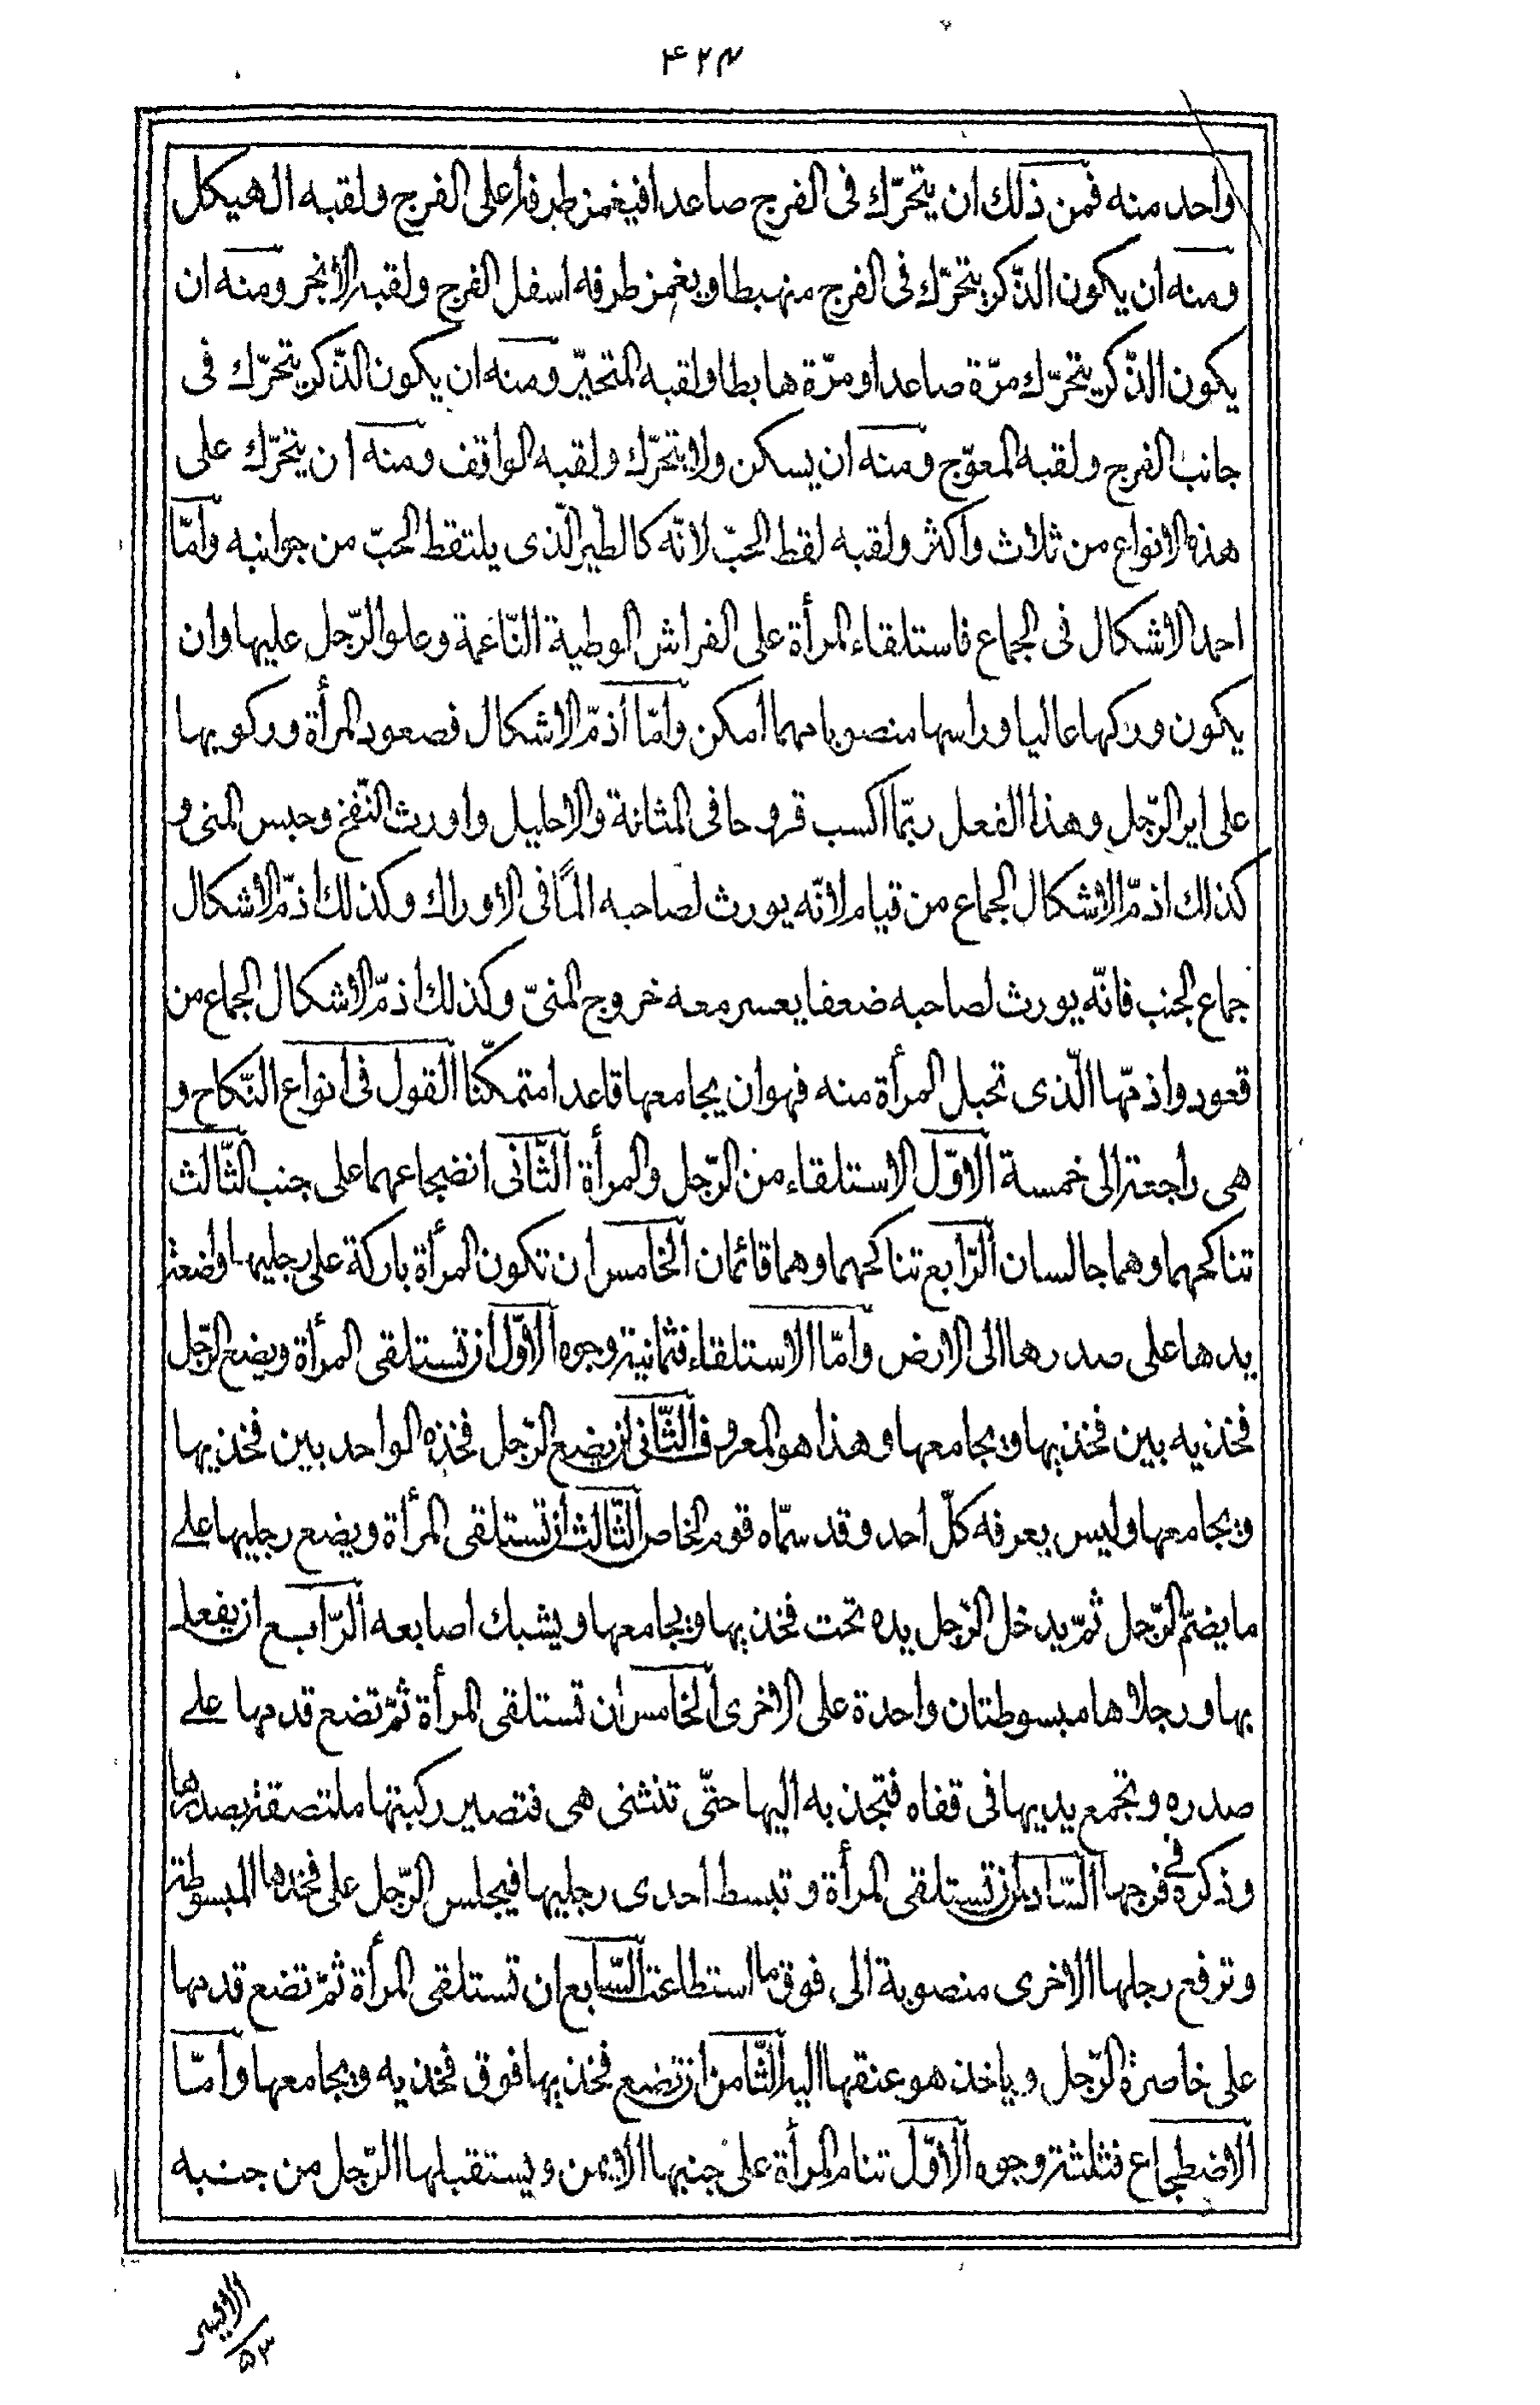 ۴۲۳
واحد منه فمن ذلك ان يتحرّك فى الفرج صاعدا فيغمز طرفه اعلى الفرج ولقبه الهيكل
ومنه ان يكون الذّكر يتحرّك فى الفرج منهبطا ويغمز طرفه اسفل الفرج ولقبه الانجر ومنه ان
يكون الذّكر يتحرّك مرّة صاعدا ومرّة هابطا ولقبه المتحيّر ومنه ان يكون الذّكر يتحرّك فى
جانب الفرج ولقبه المعوّج ومنه ان يسكن ولا يتحرّك ولقبه الواقف ومنه ان يتحرّك على
هذه الانواع من ثلاث واكثر ولقبه لقط الحبّ لانّه كالطير الّذى يلتقط الحبّ من جوانبه وامّا
احمد الاشكال فى الجماع فاستلقاء المرأة على الفراش الوطية النّاعمة وعلو الرّجل عليها وان
يكون وركها عاليا وراسها منصوبا مهما امكن وامّا اذمّ الاشكال فصعود المرأة وركوبها
على اير الرّجل وهذا الفعل ربّما اكسب قروحا فى المثانة والاحليل واورث النّفخ وحبس المنى و
كذلك اذمّ الاشكال الجماع من قيام لانّه يورث لصاحبه المًا فى الاوراك وكذلك اذمّ الاشكال
جماع الجنب فانّه يورث لصاحبه ضعفا يعسر معه خروج المنىّ وكذلك اذمّ الاشكال الجماع من
قعود واذمّها الّذى تحبل المرأة منه فهو ان يجامعها قاعدا متمكّنا القول فى انواع النّكاح و
هى راجعة الى خمسة الاوّل الاستلقاء من الرّجل والمرأة الثّانى انضجاعهما على جنب الثّالث
تناكحهما وهما جالسان الرّابع تناكحهما وهما قائمان الخامس ان تكون المرأة باركة على رجليها واضعة
يدها على صدرها الى الارض وامّا الاستلقاء فثمانية وجوه الاوّل ان تستلقى المرأة ويضع الرّجل
فخذيه بين فخذيها ويجامعها وهذا هو المعروف الثّانى ان يضع الرّجل فخذه الواحد بين فخذيها
ويجامعها وليس يعرفه كلّ احد وقد سمّاه قوم الخاص الثّالث ان تستلقى المرأة ويضع رجليها على
ما يضمّ الرّجل ثمّ يدخل الرّجل يده تحت فخذيها ويجامعها ويشبك اصابعه الرّابع ان يفعل
بها ورجلاها مبسوطتان واحدة على الاخرى الخامس ان تستلقى المرأة ثمّ تضع قدمها على
صدره وتجمع يديها فى قفاه فتجذبه اليها حتّى تنثنى هى فتصير ركبتها ملتصقة بصدرها
وذكره فى فرجها السّادس ان تستلقى المرأة وتبسط احدى رجليها فيجلس الرّجل على فخذها المبسوطة
وترفع رجلها الاخرى منصوبة الى فوق ما استطاعت السّابع ان تستلقى المرأة ثمّ تضع قدمها
على خاصرة الرّجل وياخذ هو عنقها اليه الثّامن ان تضع فخذيها فوق فخذيه ويجامعها وامّا
الاضطجاع فثلثة وجوه الاوّل تنام المرأة على جنبها الايمن ويستقبلها الرّجل من جنبه
الايسر
۵۳